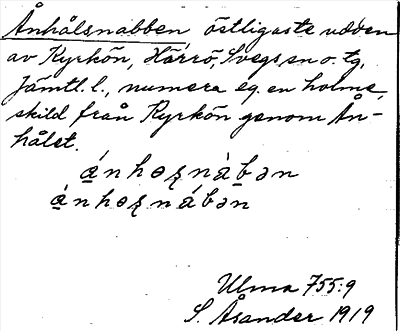 Ånhålsnabben östligaste udden
av Kyrkön, Härrö, Svegs sn o. tg,
Jämtl. l., numera eg. en holme,
skild från Kyrkön genom Ån-
hålet.
Ulma 755:9
S. Åsander 1919